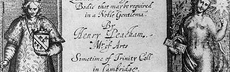 Bodie that may be required
in a Noble Gentleman.
By
Henry Peacham.
Mr. of Arts
Sometime of Trinity Coll
in Cambridge.